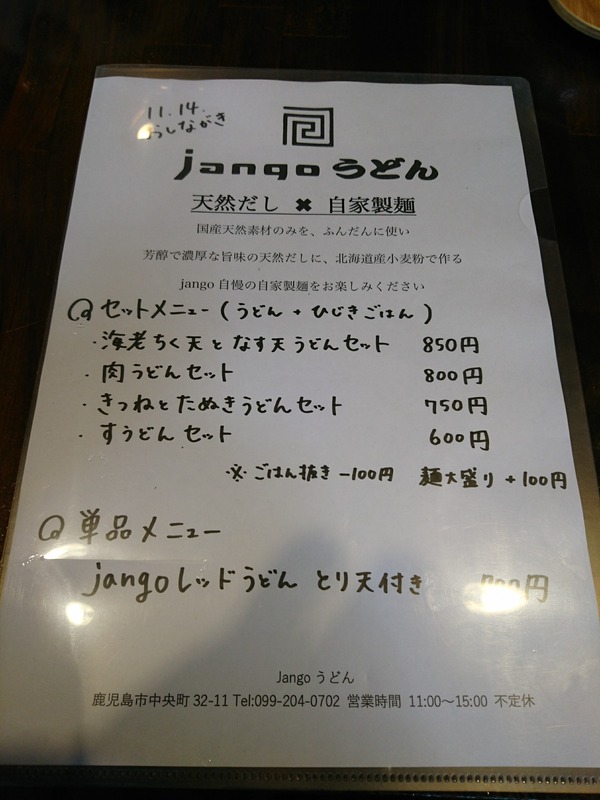 11.14.
おしながき
jangoうどん
天然だし ✖ 自家製麺
国産天然素材のみを、ふんだんに使い
芳醇で濃厚な旨味の天然だしに、北海道産小麦粉で作る
jango自慢の自家製麺をお楽しみください
@ セットメニュー (うどん + ひじきごはん)
・海老ちく天となす天うどんセット 850円
・肉うどんセット 800円
・きつねとたぬきうどんセット 750円
・すうどんセット 600円
※ごはん抜き -100円 麺大盛り +100円
@ 単品メニュー
jangoレッドうどん とり天付き 円
Jango うどん
鹿児島市中央町32-11 Tel:099-204-0702 営業時間 11:00〜15:00 不定休